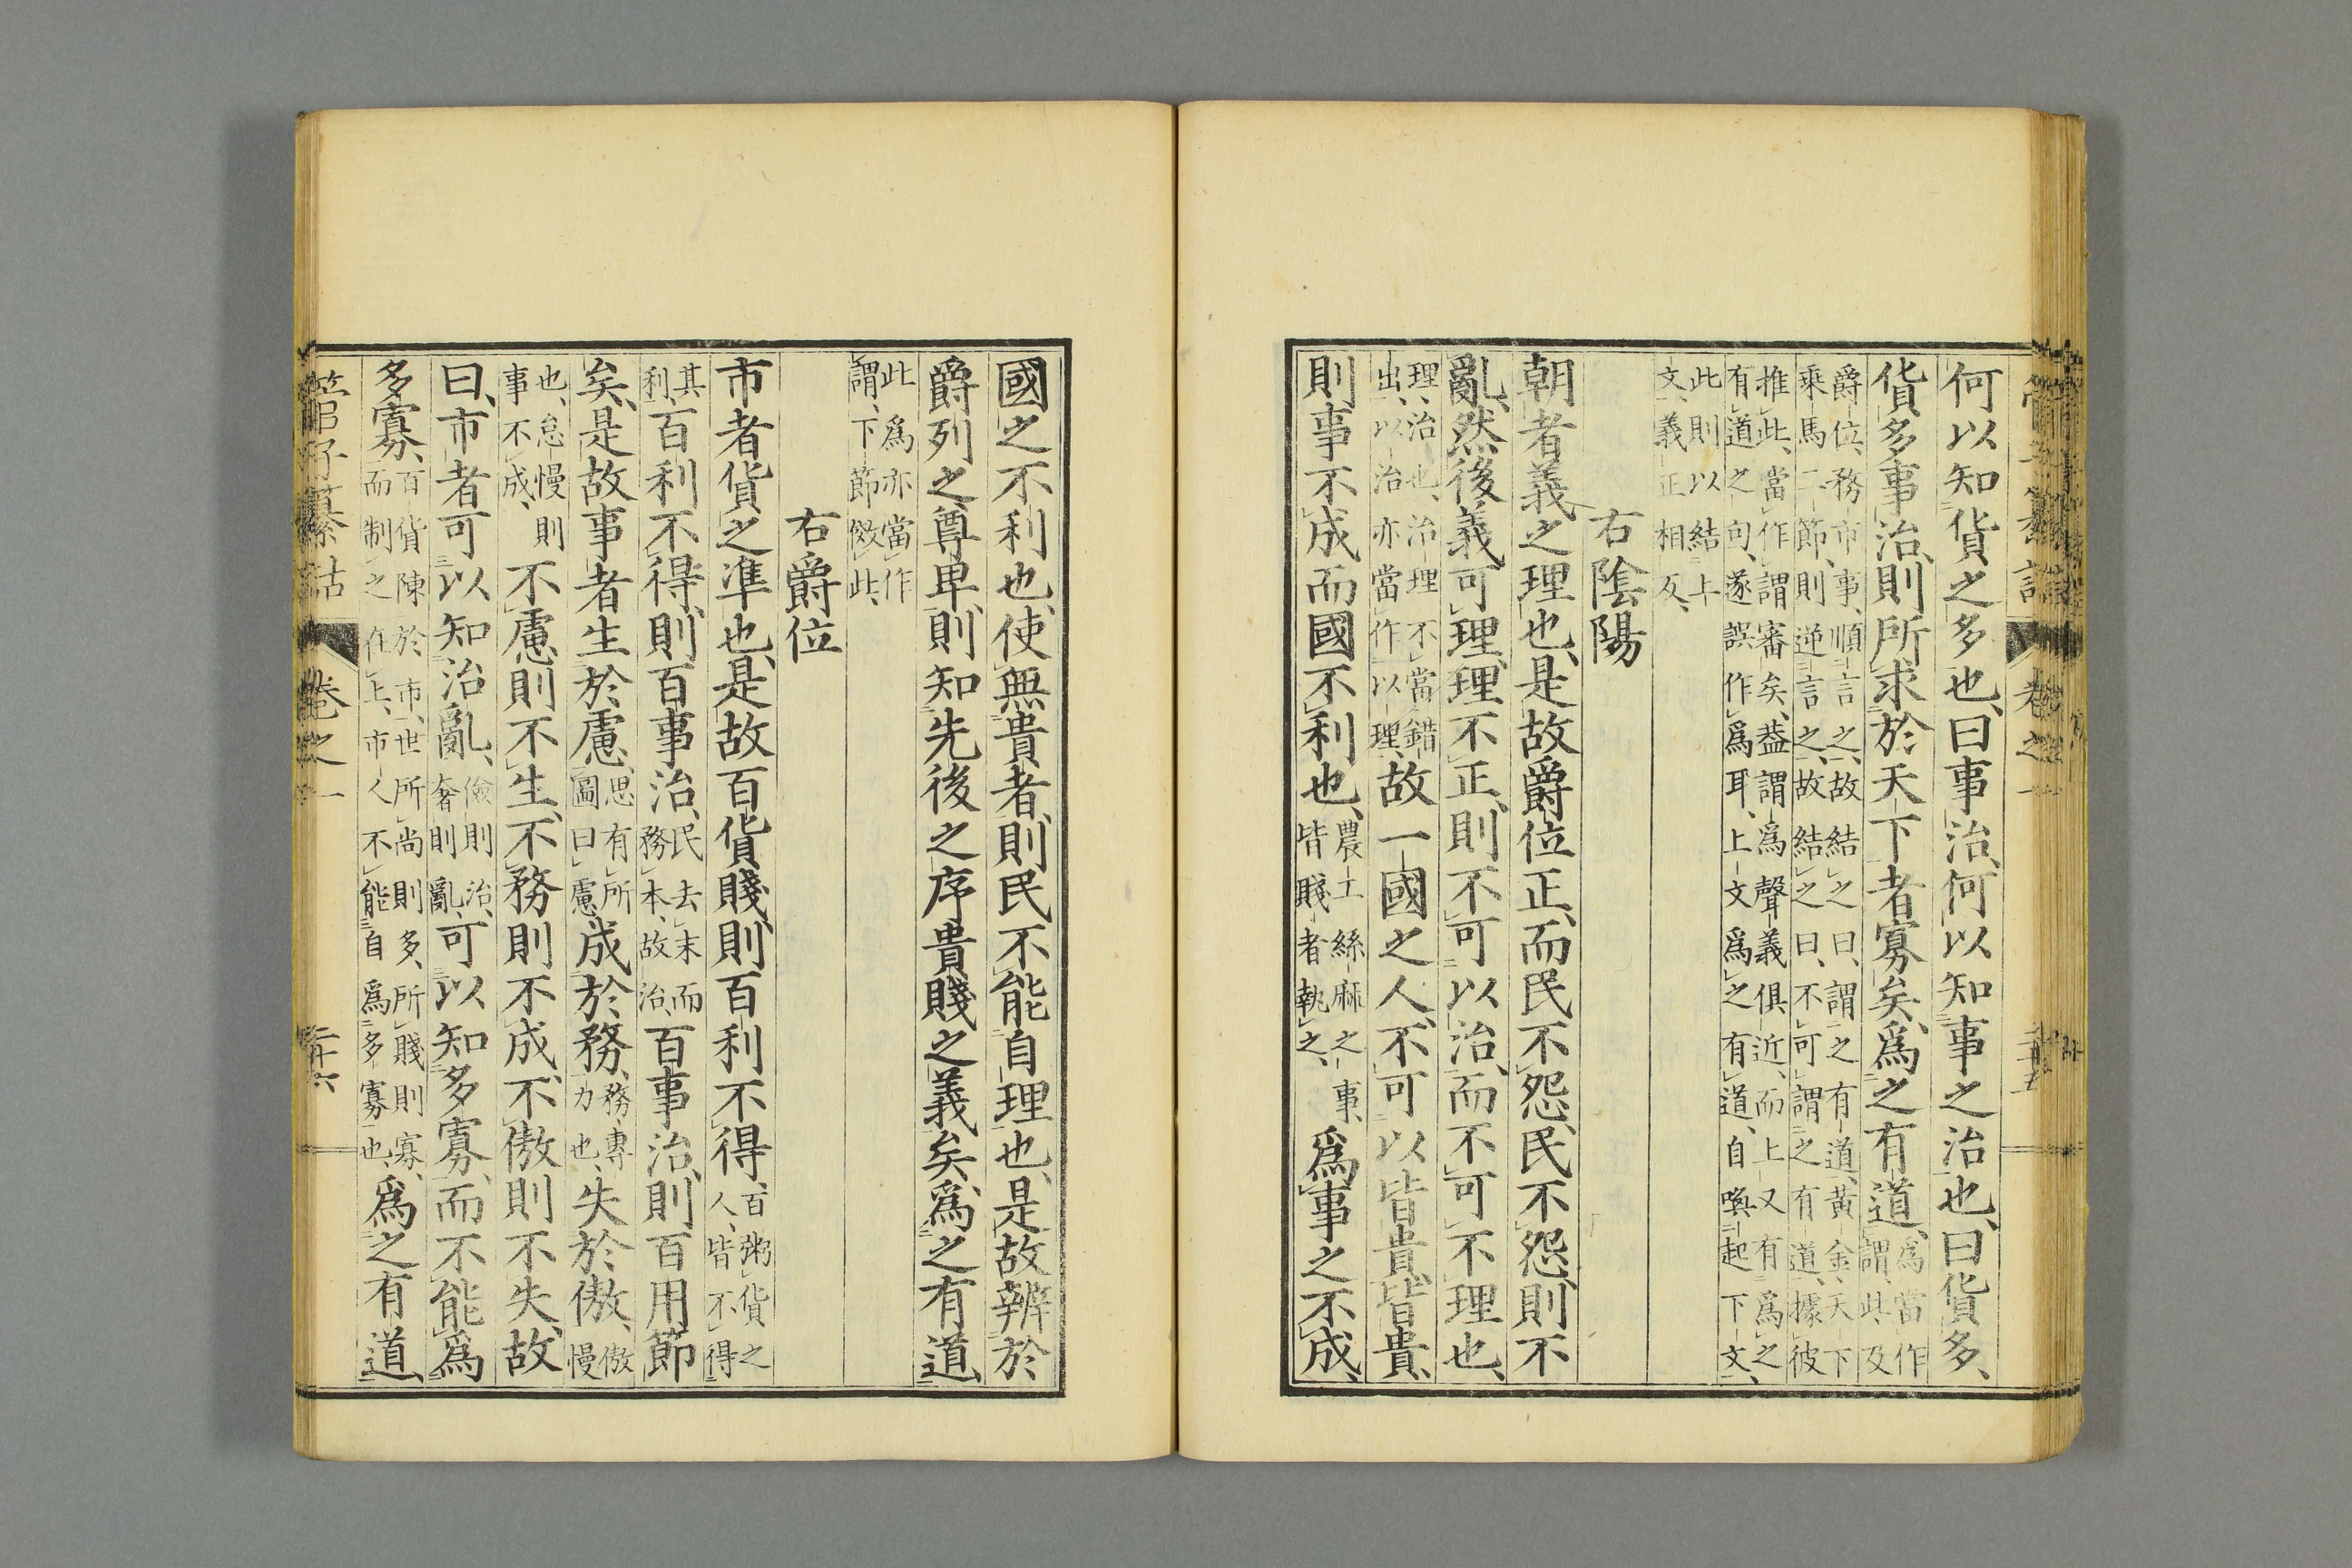 何以知貨之多也、曰事治、何以知事之治也、曰貨多、
貨多事治、則所求於天下者寡矣、爲之有道、爲當作謂、此及
爵位、務市事、順言之、故結之曰、謂之有道、黃金、天下
乘馬二節、則逆言之、故結之曰、不可謂之有道、據彼
推此、當作謂審矣、蓋謂爲聲義俱近、而上又有爲之
有道之句、遂誤作爲耳、上文爲之有道、自喚起下文、
此則以結上
文、義正相反、
右陰陽
朝者義之理也、是故爵位正、而民不怨、民不怨、則不
亂、然後義可理、理不正、則不可以治、而不可不理也、
理、治也、治理不當錯
出、以治亦當作以理、故一國之人、不可以皆貴、皆貴、
則事不成而國不利也、農工絲麻之事、
皆賤者執之、爲事之不成、
國之不利也、使無貴者、則民不能自理也、是故辨於
爵列之尊卑、則知先後之序貴賤之義矣、爲之有道
此爲亦當作
謂、下節傚此、
右爵位
市者貨之準也、是故百貨賤、則百利不得、百粥貨之
人、皆不得
其
利、百利不得、則百事治、民去末而
務本、故治、百事治、則百用節
矣、是故事者生於慮、思有所
圖曰慮、成於務、務專
力也、失於傲、傲慢
也、怠慢則
事不成、不慮則不生、不務則不成、不傲則不失、故
曰、市者可以知治亂、儉則治、
奢則亂、可以知多寡、而不能爲
多寡、百貨陳於市、世所尚則多、所賤則寡、
而制之在上、市人不能自爲多寡也、爲之有道
管子纂詁
卷之一
二十六